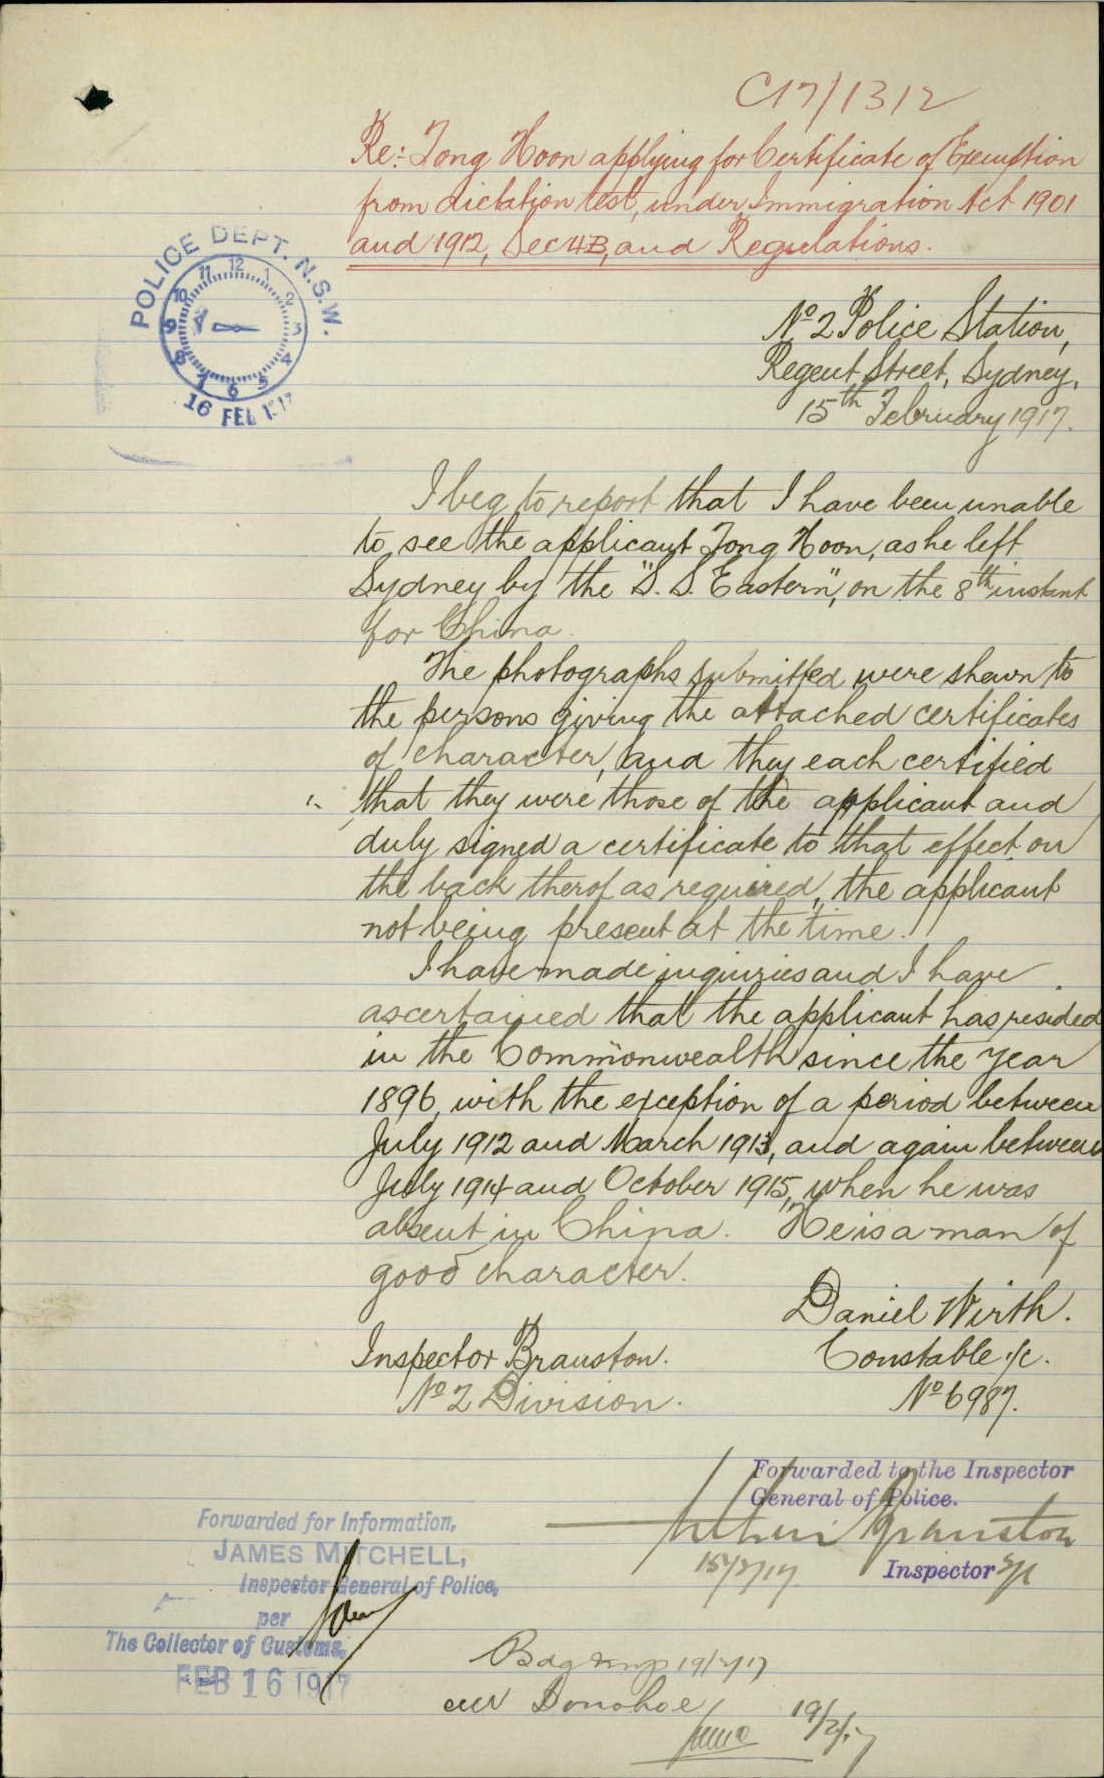 C17/1312
Re:- Tong Hoon applying for Certificate of Exemption
from dictation test, under Immigration Act 1901
and 1912, Sec 4B, and Regulations.
POLICE DEPT. N.S.W.
12 1 2 3 4 5 6 7 8 9 10 11
16 FEB 1917
No 2 Police Station,
Regent Street, Sydney,
15th February 1917.
I beg to report that I have been unable
to see the applicant Tong Hoon, as he left
Sydney by the "S.S. Eastern", on the 8th instant
for China.
The photographs submitted were shewn to
the persons giving the attached certificates
of character, and they each certified
that they were those of the applicant and
duly signed a certificate to that effect on
the back therof as required, the applicant
not being present at the time.
I have made inquiries and I have
ascertained that the applicant has resided
in the Commonwealth since the year
1896, with the exception of a period between
July 1912 and March 1913, and again between
July 1914 and October 1915, when he was
absent in China. He is a man of
good character.
Daniel Wirth.
Constable 1/c.
No 6987.
Inspector Brauston.
No 2 Division.
Forwarded to the Inspector
General of Police.
Brauston
15/2/17
Inspector
Forwarded for Information,
JAMES MITCHELL,
Inspector General of Police,
per
The Collector of Customs.
FEB 16 1917
19/2/17
Donohoe
19/2/17